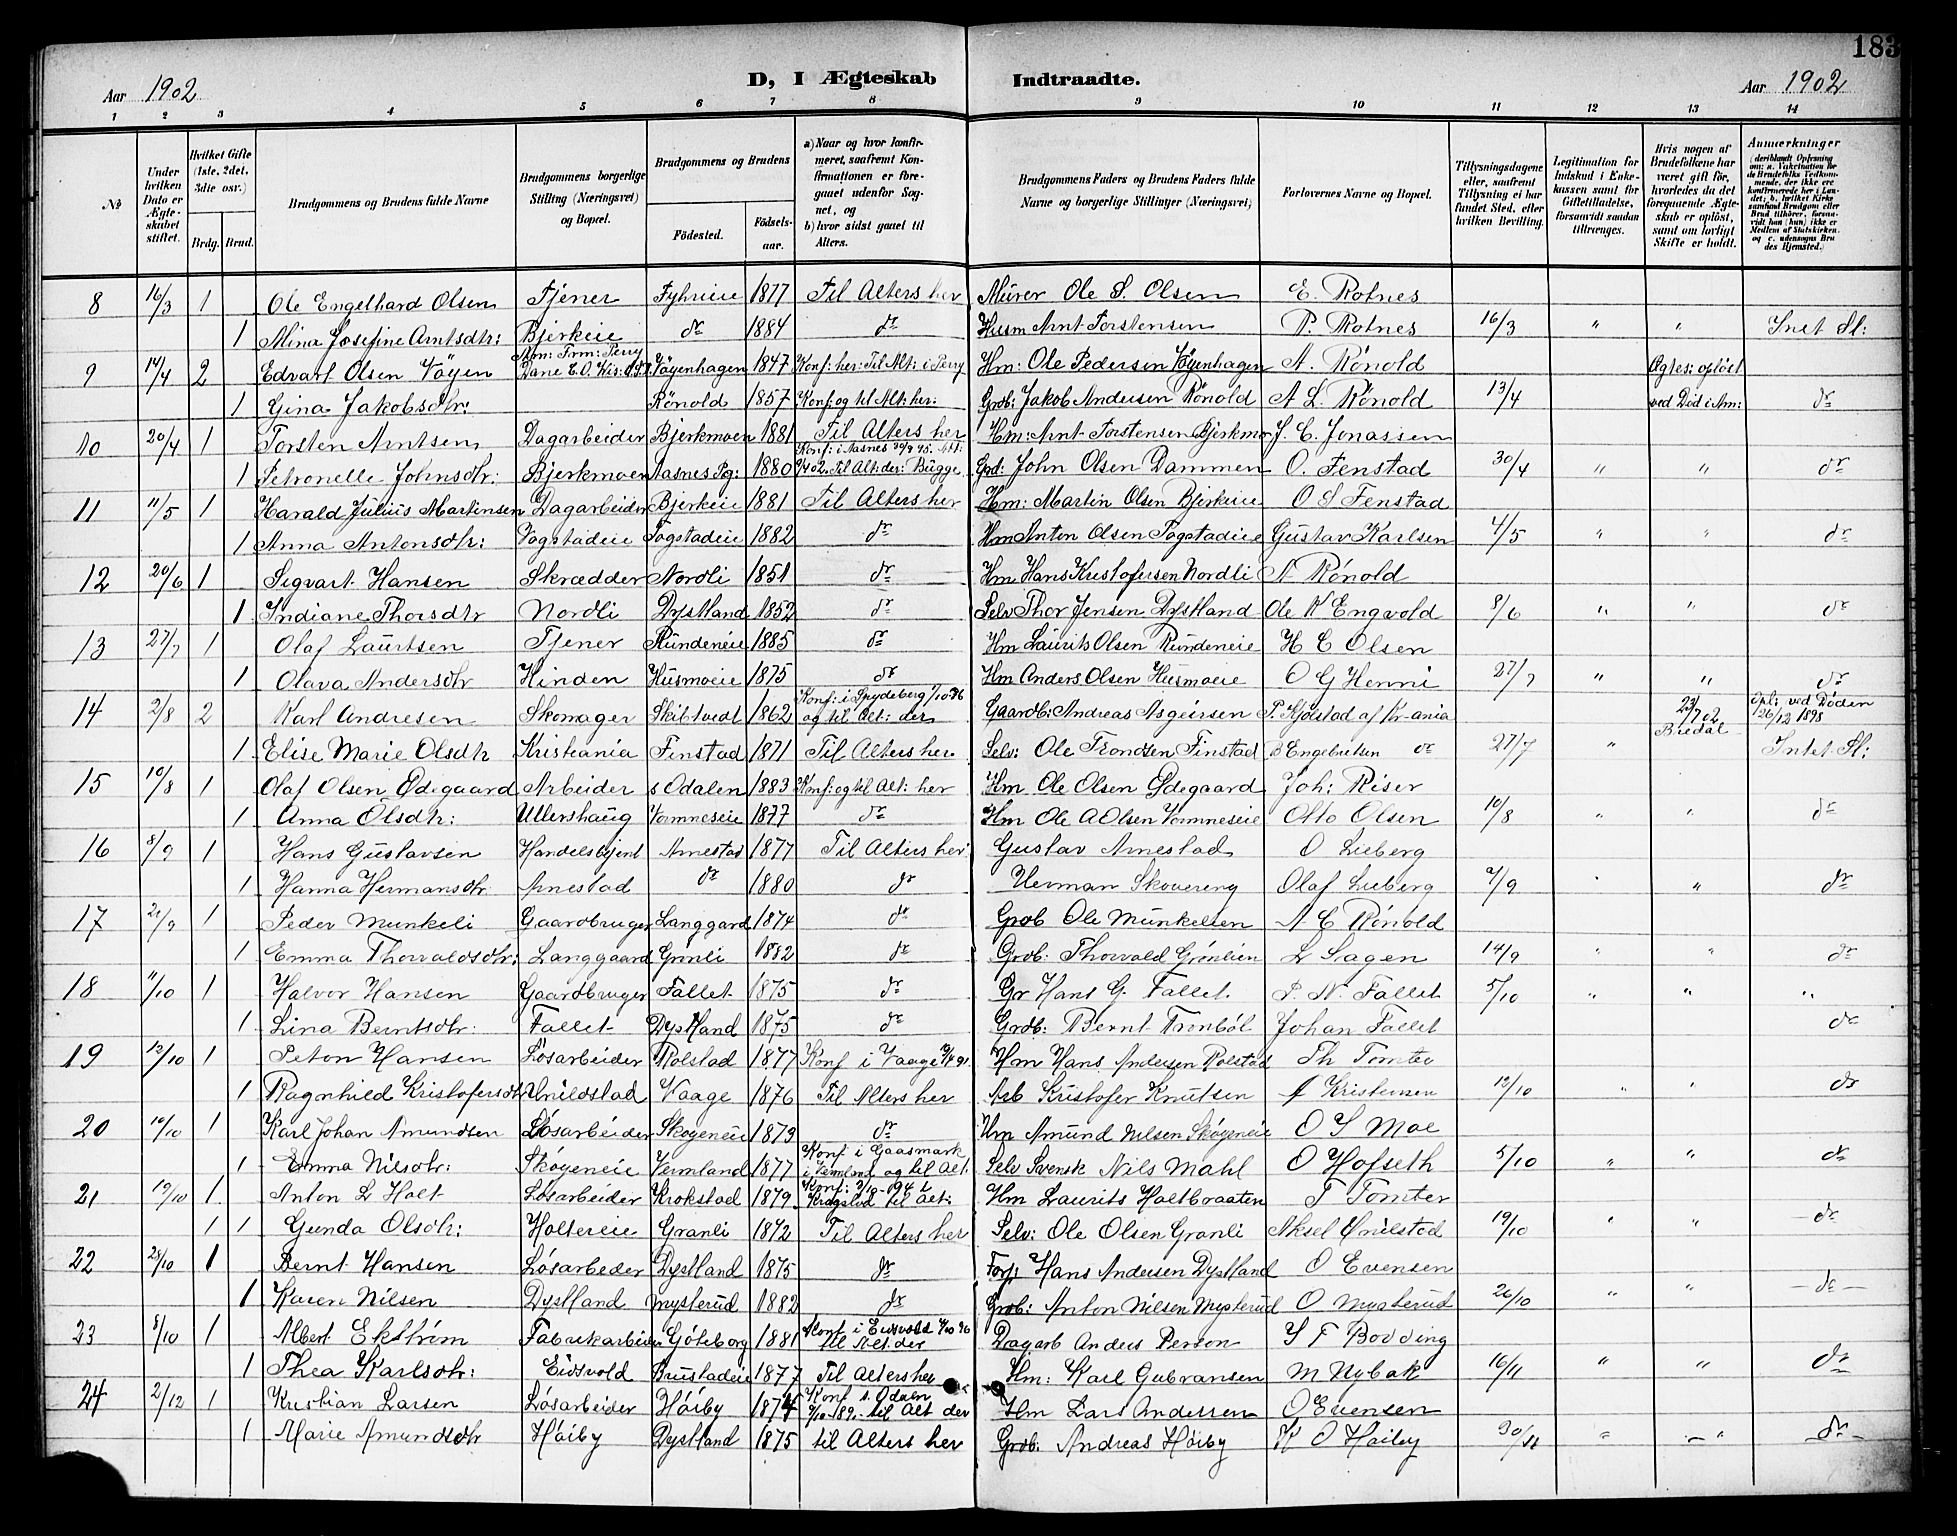 183
Aar 1902 D, I Ægteskab Indtraadte. Aar 1902
1 2 3 4 5 6 7 8 9 10 11 12 13 14
No
Under hvilken Dato er Ægteskabet stiftet.
Hvilket Gifte (1ste, 2det, 3die osv.)
Brdg. Brud.
Brudgommens og Brudens fulde Navne
Brudgommens borgerlige Stilling (Næringsvei) og Bopæl.
Brudgommens og Brudens
Födested. Födsels-aar.
a) Naar og hvor konfirmeret, saafremt Konfirmationen er foregaaet udenfor Sognet, og
b) hvor sidst gaaet til Alters.
Brudgommens Faders og Brudens Faders fulde Navne og borgerlige Stillinger (Næringsvei)
Forlovernes Navne og Bopæl.
Tillysningsdagene eller, saafremt Tillysning ei har fundet Sted, efter hvilken Bevilling.
Legitimation for Indskud i Enkekassen samt for Giftetilladelse, forsaavidt saadan tiltrænges.
Hvis nogen af Brudefolkene har været gift för, hvorledes da det foregaaende Ægteskab er oplöst, samt om lovligt Skifte er holdt.
Anmerkninger
8 16/3 1 Ole Engelhard Olsen Tjener 1877 Til Alters her Murer Ole S. Olsen E. Rotnes
1 Mina Josefine Arntsdtr: Bjerkeie do 1884 do Husm Arnt Torstensen P. Rotnes 16/3 " "
9 14/4 2 Edvart Olsen Vøyen Vøyenhagen 1847 Konf: her: Til Alt: i Perry Hm: Ole Pedersen Vøyenhagen A. Rönold Ægtes: opløst
1 Gina Jakobsdtr: Rönold 1857 Konf: og til Alt: her: Grdb: Jakob Andersen Rönold A L. Rönold 13/4 ved Død i Am: do
10 20/4 1 Torsten Arntsen Dagarbeider Bjerkmoen 1881 Til Alters her Hm: Arnt Torstensen Bjerkmo J. C. Jonassen
1 Petronelle Johnsdtr: Bjerkmoen Aasnes Pg: 1880 Til Alt: der: Bugge Grd: John Olsen Dammen O. Fenstad 30/4 " " do
11 11/5 1 Harald Julius Martinsen Dagarbeider Bjerkeie 1881 Til Alters her Hm: Martin Olsen Bjerkeie O S Fenstad
1 Anna Antonsdtr: Fogstadeie Fogstadeie 1882 do Hm Anton Olsen Fogstadeie Gustav Karlsen 4/5 " " do
12 20/6 1 Sigvart Hansen Skrædder Nordli 1851 do Hm Hans Kristofersen Nordli A Rönold
1 Indiane Thorsdtr Nordli Dystland 1852 do Selv Thor Jensen Dystland Ole K Engvold 8/6 " " do
13 27/7 1 Olaf Lauritsen Tjener Rundeneie 1885 do Hm Laurits Olsen Rundeneie H C Olsen
1 Olava Andersdtr Hinden Husmoeie 1875 do Hm Anders Olsen Husmoeie O G Henni 27/7 " " do
14 2/8 2 Karl Andresen Skomager Skibtvedt 1862 Konf: i Spydeberg 1/10 86 og til Alt: der Gaardb: Andreas Asgeirsen P. Kjølstad af Kr-ania 23/7 02 Bredal Opl: ved Døden 26/12 1898
1 Elise Marie Olsdtr Kristiania Finstad 1871 Til Alters her Selv: Ole Trondsen Finstad B Engebretsen do 27/7 " Intet Sl:
15 10/8 1 Olaf Olsen Ødegaard Arbeider s Odalen 1883 Konf: og til Alt: her Hm Ole Olsen Ødegaard Joh: Riser
1 Anna Olsdtr: Ullershaug Vormneseie 1877 do Hm Ole A Olsen Vormneseie Otto Olsen 10/8 " " do
16 8/9 1 Hans Gustavsen Handelsbjent Arnestad 1877 Til Alters her Gustav Arnestad O Lieberg
1 Hanna Hermansdtr Arnestad do 1880 do Herman Skovereng Olaf Lieberg 2/9 " do
17 21/9 1 Peder Munkeli Gaardbruger Langgard 1874 do Grdb Ole Munkelsen A C Rönold
1 Emma Thorvaldsdtr: Langgaard Grönli 1882 do Grdb: Thorvald Grönlien L Sagen 14/9 " " do
18 11/10 1 Halvor Hansen Gaardbruger Fallet 1875 do Gr Hans G. Fallet P. N. Fallet 5/10 " " "
1 Lina Berntsdtr: Fallet Dystland 1875 do Grdb: Bernt Tronböl Johan Fallet do
19 12/10 1 Peton Hansen Løsarbeider Rolstad 1877 Konf i Vaage Hm Hans Andersen Rolstad Th Tomter
1 Ragnhild Kristofersdtr Unildstad Vaage 1876 Til Alters her Arb Kristofer Knutsen Kristensen 12/10 " " do
20 10/10 1 Karl Johan Amundsen Løsarbeider Skøgeneie 1873 do Hm Amund Nilsen Skøgeneie O S Moe
1 Emma Nilsdtr: Skøgeneie Vermland 1877 Konf i Gaasmark i Vermland og til Alt. Selv Svensk Nils Mahl O Hofseth 5/10 " " do
21 19/10 1 Anton L Holt Løsarbeider Krokstad 1879 Kragstad Til Alt: Hm Laurits Holtbraaten T Tomter
1 1 Gunda Olsdtr: Holtereie Granli 1872 Til Alters her Selv: Ole Olsen Granli Aksel Unilstad 19/10 " " do
22 28/10 1 Bernt Hansen Løsarbeder Dystland 1875 do Forp Hans Andersen Dystland O Evensen
1 Karen Nilsen Dystland Mysterud 1882 do Grdb: Anton Nilsen Mysterud O Mysterud 26/10 " " do
23 8/10 1 Albert Ekström Fabrikarbeider Göteborg 1881 Konf i Eidsvold til Alt der Dagarb Anders Person S T Bodding
1 Thea Karlsdtr: Eidsvold Brustadeie 1877 Til Alters her Hm: Karl Gubransen M Nybak 16/11 " " do
24 2/12 1 Kristian Larsen Løsarbeider Höiby 1874 Konf s. Odalen til Alt der Hm Lars Andersen O Evensen
1 Marie Amundsdtr Höiby Dystland 1875 til Alters her Grdb: Andreas Höiby K O Höiby 30/11 " " do